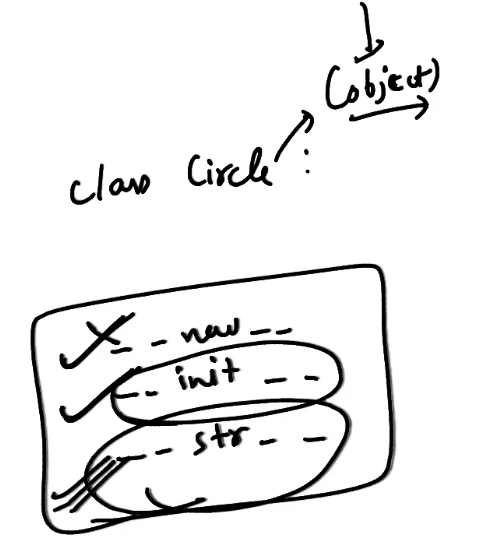 (object)
class Circle :
__new__
__init__
__str__